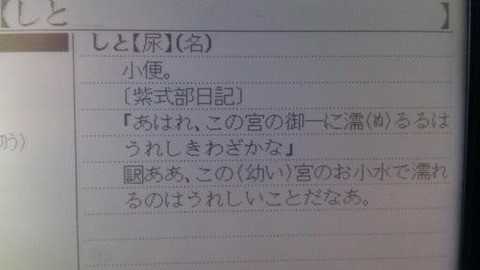 【しと 】
しと【尿】(名)
小便。
〔紫式部日記〕
「あはれ、この宮の御―に濡(ぬ)るるは
うれしきわざかな」
訳ああ、この〈幼い〉宮のお小水で濡れ
るのはうれしいことだなあ。